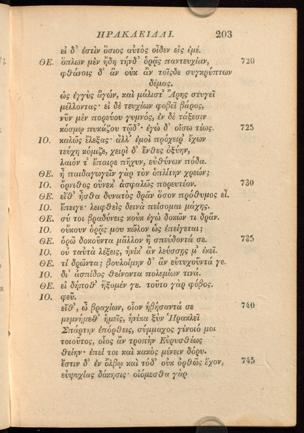 ΗΡΑΚΛΕΙΔΑΙ. 203
εἰ δ' ἐστὶν ὅσιος αὐτὸς οἶδεν εἰς ἐμέ.
ΘΕ. ὅπλων μὲν ἤδη τήνδ' ὁρᾷς παντευχίαν, 720
φθάνοις δ' ἂν οὐκ ἂν τοῖσδε συγκρύπτων
δέμας.
ὡς ἐγγὺς ἁγών, καὶ μάλιστ' Ἄρης στυγεῖ
μέλλοντας· εἰ δὲ τευχέων φοβεῖ βάρος,
νῦν μὲν πορεύου γυμνός, ἐν δὲ τάξεσιν
κόσμῳ πυκάζου τῷδ'· ἐγὼ δ' οἴσω τέως. 725
ΙΟ. καλῶς ἔλεξας· ἀλλ' ἐμοὶ πρόχειρ' ἔχων
τεύχη κόμιζε, χειρὶ δ' ἔνθες ὀξύην,
λαιόν τ' ἔπαιρε πῆχυν, εὐθύνων πόδα.
ΘΕ. ἦ παιδαγωγεῖν γὰρ τὸν ὁπλίτην χρεών;
ΙΟ. ὄρνιθος οὕνεκ' ἀσφαλῶς πορευτέον. 730
ΘΕ. εἴθ' ἦσθα δυνατὸς δρᾶν ὅσον πρόθυμος εἶ.
ΙΟ. ἔπειγε· λειφθεὶς δεινὰ πείσομαι μάχης.
ΘΕ. σύ τοι βραδύνεις κοὐκ ἐγὼ δοκῶν τι δρᾶν.
ΙΟ. οὔκουν ὁρᾷς μου κῶλον ὡς ἐπείγεται;
ΘΕ. ὁρῶ δοκοῦντα μᾶλλον ἢ σπεύδοντά σε. 735
ΙΟ. οὐ ταῦτα λέξεις, ἡνίκ' ἂν λεύσσῃς μ' ἐκεῖ.
ΘΕ. τί δρῶντα; βουλοίμην δ' ἂν εὐτυχοῦντά γε.
ΙΟ. δι' ἀσπίδος θείνοντα πολεμίων τινά.
ΘΕ. εἰ δήποθ' ἥξομέν γε. τοῦτο γὰρ φόβος.
ΙΟ. φεῦ.
εἴθ', ὦ βραχίων, οἷον ἡβήσαντά σε 740
μεμνήμεθ' ἡμεῖς, ἡνίκα ξὺν Ἡρακλεῖ
Σπάρτην ἐπόρθεις, σύμμαχος γένοιό μοι
τοιοῦτος, οἷος ἂν τροπὴν Εὐρυσθέως
θείην· ἐπεί τοι καὶ κακὸς μένειν δόρυ.
ἔστιν δ' ἐν ὄλβῳ καὶ τόδ' οὐκ ὀρθῶς ἔχον, 745
εὐψυχίας δόκησις· οἰόμεσθα γὰρ